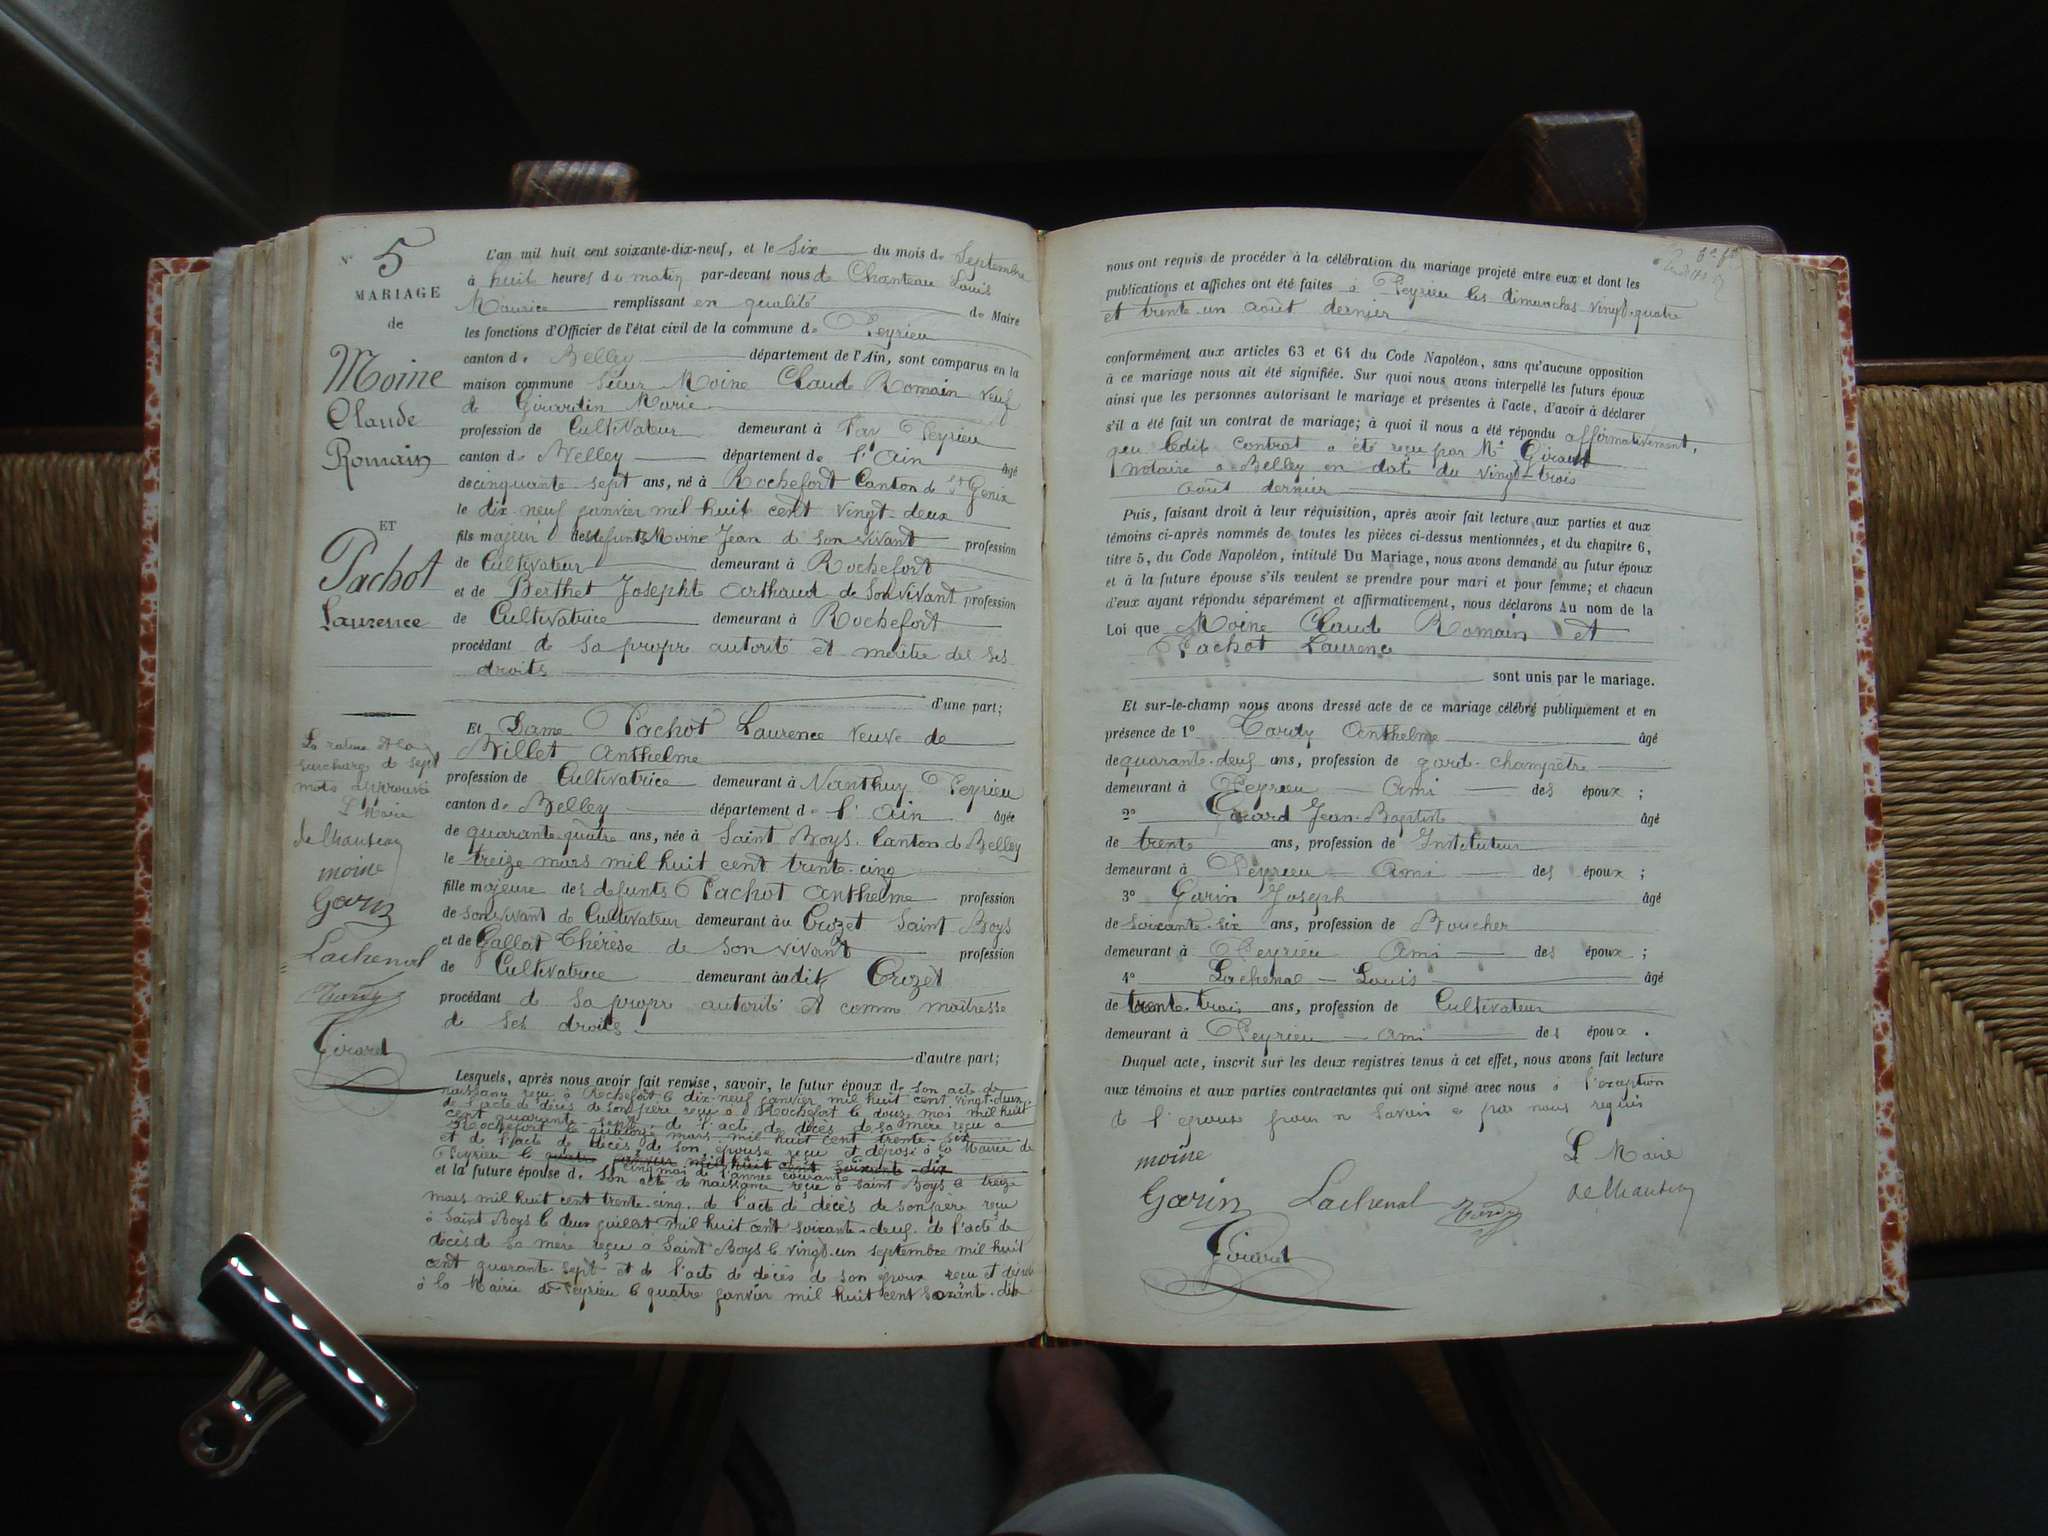 N° 5
MARIAGE
de
Moine
Claude
Romain
ET
Pachot
Laurence
La rature et la
surcharge de sept
mots approuvée
L Maire
de Chanteau
moine
Garin
Lachenal
Tardy
Girard
L'an mil huit cent soixante-dix-neuf, et le Six du mois de Septembre
à huit heures du matin par-devant nous de Chanteau Louis
Maurice remplissant en qualité de Maire
les fonctions d'Officier de l'état civil de la commune de Peyrieu
canton de Belley département de l'Ain, sont comparus en la
maison commune Sieur Moine Claude Romain Veuf
de Girardin Marie
profession de Cultivateur demeurant à Fay Peyrieu
canton de Belley département de l'Ain âgé
de cinquante-sept ans, né à Rochefort Canton de St Genix
le dix-neuf janvier mil huit cent vingt-deux
fils majeur des defunts Moine Jean de son vivant profession
de Cultivateur demeurant à Rochefort
et de Berthet Josephte Arthaud de son vivant profession
de Cultivatrice demeurant à Rochefort
procédant de sa propre autorité et maître des ses
droits
d'une part;
Et Dame Pachot Laurence Veuve de
Millet Anthelme
profession de Cultivatrice demeurant à Nanthuy Peyrieu
canton de Belley département de l'Ain âgée
de quarante-quatre ans, née à Saint Boys. Canton de Belley
le treize mars mil huit cent trente-cinq
fille majeure des defunts Pachot Anthelme profession
de son vivant de Cultivateur demeurant au Crozet Saint Boys
et de Gallat Thérèse de son vivant profession
de Cultivatrice demeurant audit Crozet
procédant de sa propre autorité et comme maîtresse
de ses droits
d'autre part;
Lesquels, après nous avoir fait remise, savoir, le futur époux de son acte de
naissance reçu à Rochefort le dix-neuf janvier mil huit cent vingt-deux.
de l'acte de décès de son père reçu à Rochefort le douze mai mil huit
cent quarante-sept, de l'acte de décès de sa mère reçu à
Rochefort le quatorze mars mil huit cent trente-six
et de l'acte de décès de son épouse reçu et déposé à la Mairie de
Peyrieu le quatre janvier mil huit cent soixante-dix
cinq mai de l'année courante
et la future épouse de son acte de naissance reçu à Saint Boys le treize
mars mil huit cent trente-cinq. de l'acte de décès de son père reçu
à Saint Boys le deux juillet mil huit cent soixante-deux. de l'acte de
décès de sa mère reçu à Saint Boys le vingt-un septembre mil huit
cent quarante-sept et de l'acte de décès de son époux reçu et déposé
à la Mairie de Peyrieu le quatre janvier mil huit cent soixante-dix
nous ont requis de procéder à la célébration du mariage projeté entre eux et dont les
publications et affiches ont été faites à Peyrieu les dimanches vingt-quatre
et trente-un août dernier
conformément aux articles 63 et 64 du Code Napoléon, sans qu'aucune opposition
à ce mariage nous ait été signifiée. Sur quoi nous avons interpellé les futurs époux
ainsi que les personnes autorisant le mariage et présentes à l'acte, d'avoir à déclarer
s'il a été fait un contrat de mariage; à quoi il nous a été répondu affirmativement,
que ledit contrat a été reçu par Me Giraud
Notaire à Belley en date du vingt-trois
août dernier
Puis, faisant droit à leur réquisition, après avoir fait lecture aux parties et aux
témoins ci-après nommés de toutes les pièces ci-dessus mentionnées, et du chapitre 6,
titre 5, du Code Napoléon, intitulé Du Mariage, nous avons demandé au futur époux
et à la future épouse s'ils veulent se prendre pour mari et pour femme; et chacun
d'eux ayant répondu séparément et affirmativement, nous déclarons Au nom de la
Loi que Moine Claude Romain et
Pachot Laurence
sont unis par le mariage.
Et sur-le-champ nous avons dressé acte de ce mariage célébré publiquement et en
présence de 1° Tardy Anthelme âgé
de quarante-deux ans, profession de garde-champêtre
demeurant à Peyrieu Ami des époux ;
2° Girard Jean-Baptiste âgé
de trente ans, profession de Instituteur
demeurant à Peyrieu Ami des époux ;
3° Garin Joseph âgé
de soixante-six ans, profession de Boucher
demeurant à Peyrieu Ami des époux ;
4° Lachenal Louis âgé
de trente-trois ans, profession de Cultivateur
demeurant à Peyrieu ami des époux .
Duquel acte, inscrit sur les deux registres tenus à cet effet, nous avons fait lecture
aux témoins et aux parties contractantes qui ont signé avec nous à l'exception
de l'épouse pour ne savoir de par nous requis
moine
L Maire
Garin Lachenal Tardy de Chanteau
Girard